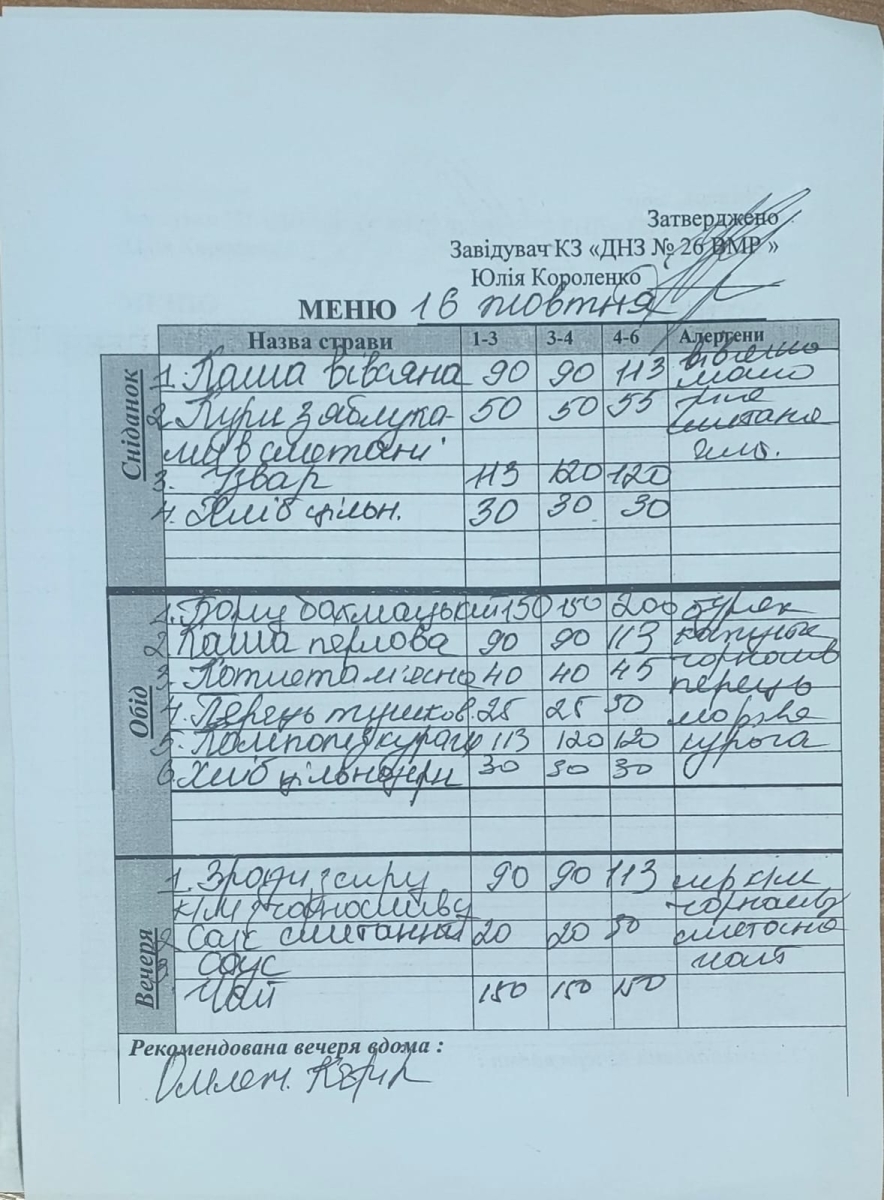 Затверджено
Завідувач КЗ «ДНЗ № 26 ВМР »
Юлія Короленко
МЕНЮ 16 жовтня
Назва страви 1-3 3-4 4-6 Алергени
Сніданок
1. Каша вівсяна 90 90 113
2. Кури з яблука- 50 50 55
ми в сметані сметана
3. Узвар 113 120 120
4. Хліб цільн. 30 30 30
Обід
1. Борщ 150 150 200 буряк
2. Каша перлова 90 90 113 капуста
3. Котлета м'ясна 40 40 45 чорнослив
4. Перець тушков. 25 25 30 перець
5. Компот з кураги 113 120 120 морква
6. Хліб цільнозерн 30 30 30 курага
Вечеря
1. Зрази з сиру 90 90 113 сир к/м
к/м з чорносливу чорнослив
2 Соус сметанний 20 20 30 сметана
3 соус чай
Чай 150 150 150
Рекомендована вечеря вдома :
Омлет.